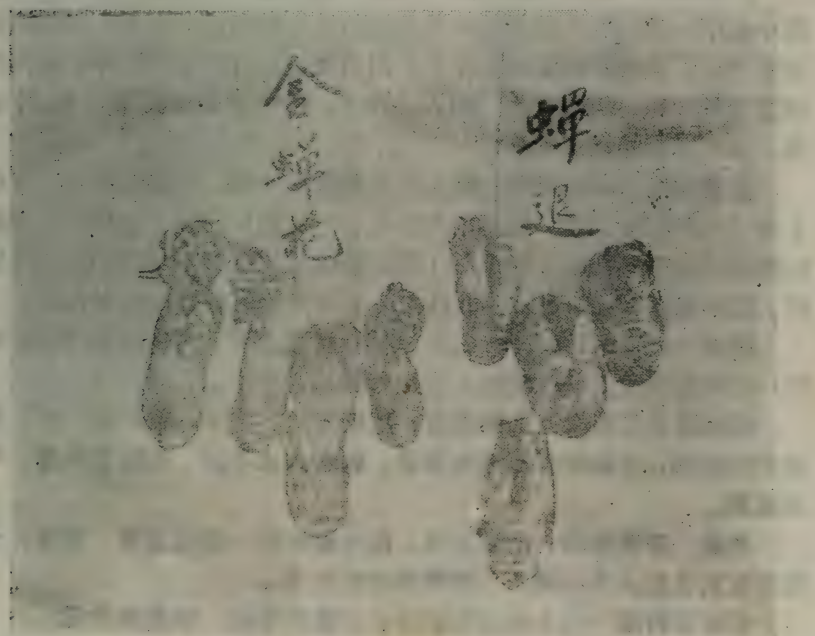 蟬退
金蝉花